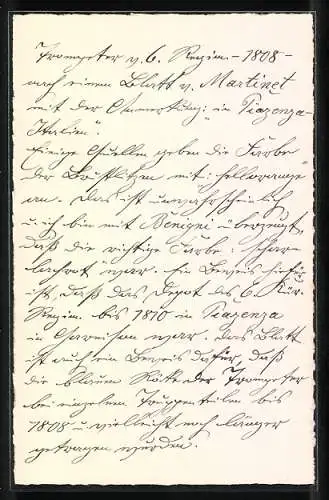 Trompeter v. 6. Regim. - 1808 -
nach einem Blatt v. Martinet
mit der Anmerkung: in Piazenza -
Italien".
Einige Quellen geben die Farbe
der Brustlitzen mit: hellorange
an. Das ist unwahrscheinlich
u. ich bin mit Benigni überzeugt,
daß die richtige Farbe: schar-
lachrot" war. Ein Beweis hiefür
ist, daß das Depot des 6. Kür.
Regim. bis 1810 in Piazenza
in Garnison war. Das Blatt
ist auch ein Beweis dafür, daß
die blauen Röcke der Trompeter
bei einzelnen Truppenteilen bis
1808 u. vielleicht noch länger
getragen wurden.